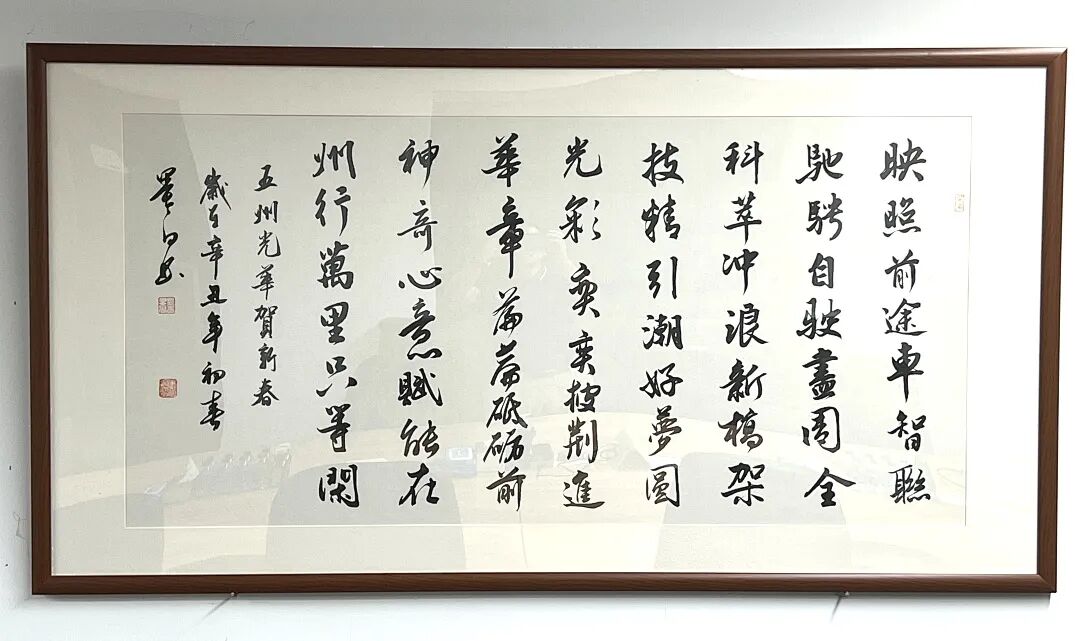 映照前途車智聯
馳騁自駛盡周全
科萃冲浪新橋架
技精引潮好夢圓
光彩奕奕披荆進
華章篇篇砥砺前
神奇心意賦能在
州行萬里只等閑
五州光華賀新春
歲在辛丑年初春